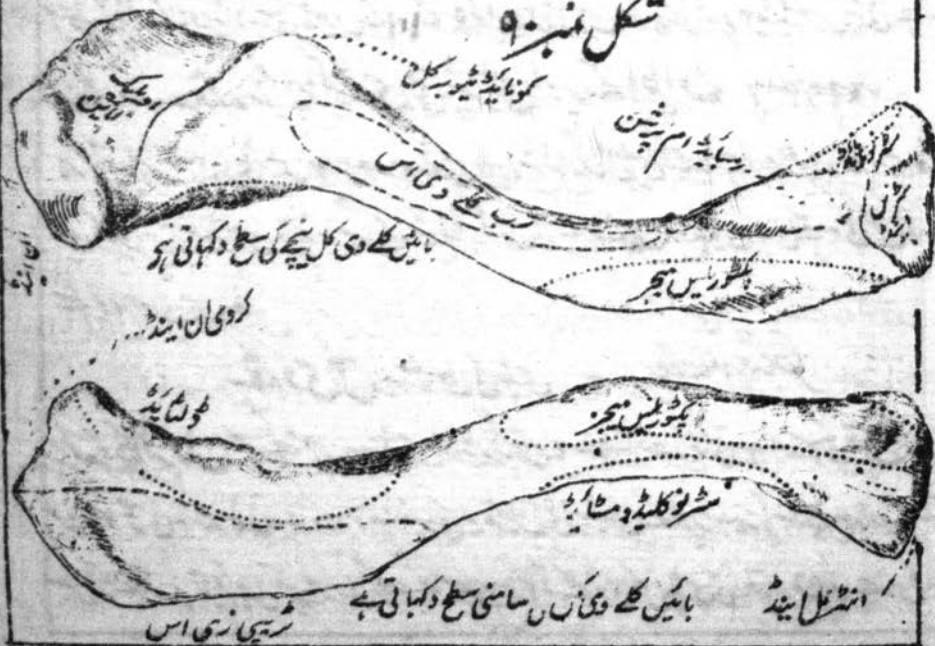 شکل نمبر ۹۰
کونایڈ ٹیوبرکل
رہمبائیڈ ام پرشن
سب کلے وی اس
پکٹوریلس میجر
بائیں کلے وی کل نیچے کی سطح دکھاتی ہے
کرومی ان اینڈ
ڈلٹایڈ
پکٹوریلس میجر
سٹرنوکلیڈو مسٹائیڈ
انٹرنل اینڈ
بائیں کلے وی سامنی سطح دکھاتی ہے
ٹریپی زی اس